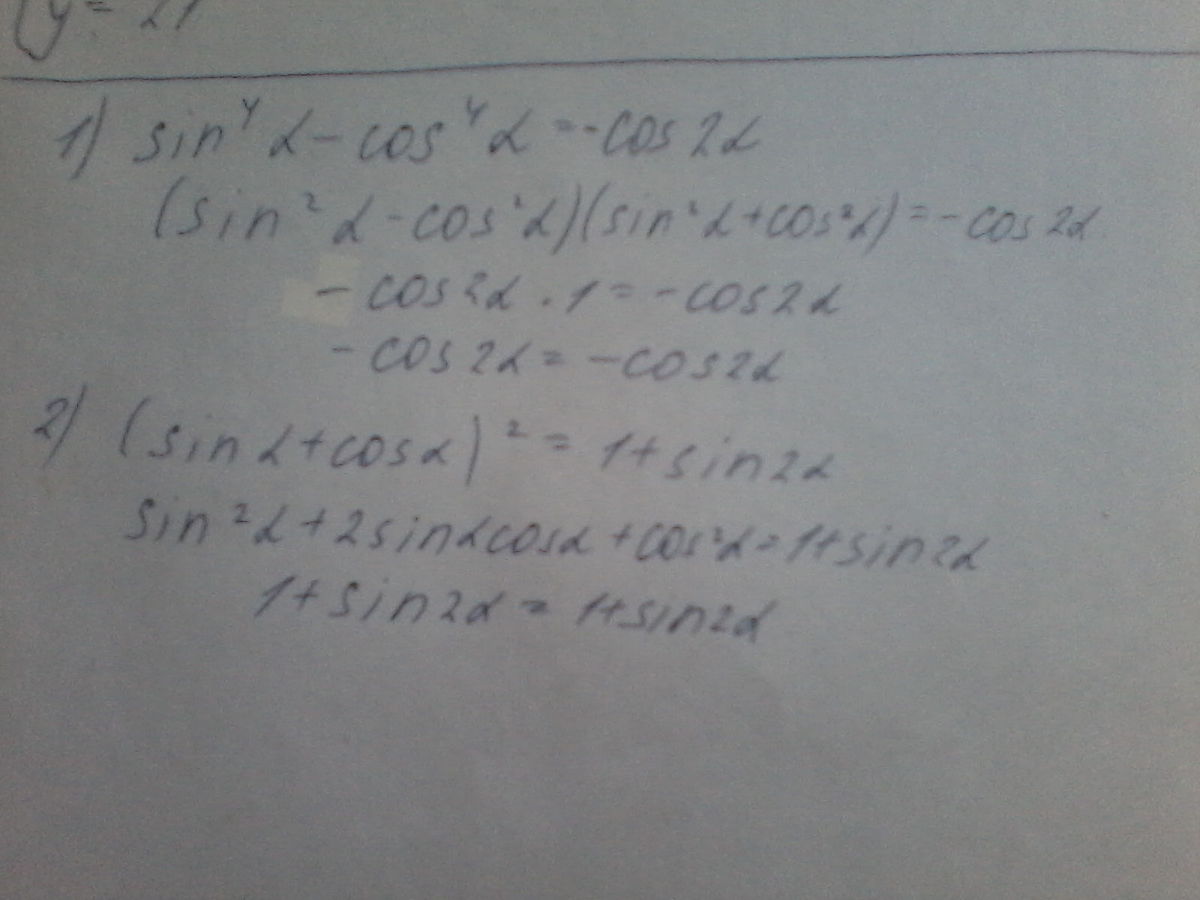 y = 21
1) sin⁴α - cos⁴α = -cos2α
(sin²α - cos²α)(sin²α + cos²α) = -cos2α
- cos2α · 1 = -cos2α
- cos2α = -cos2α
2) (sinα + cosα)² = 1 + sin2α
sin²α + 2sinαcosα + cos²α = 1 + sin2α
1 + sin2α = 1 + sin2α